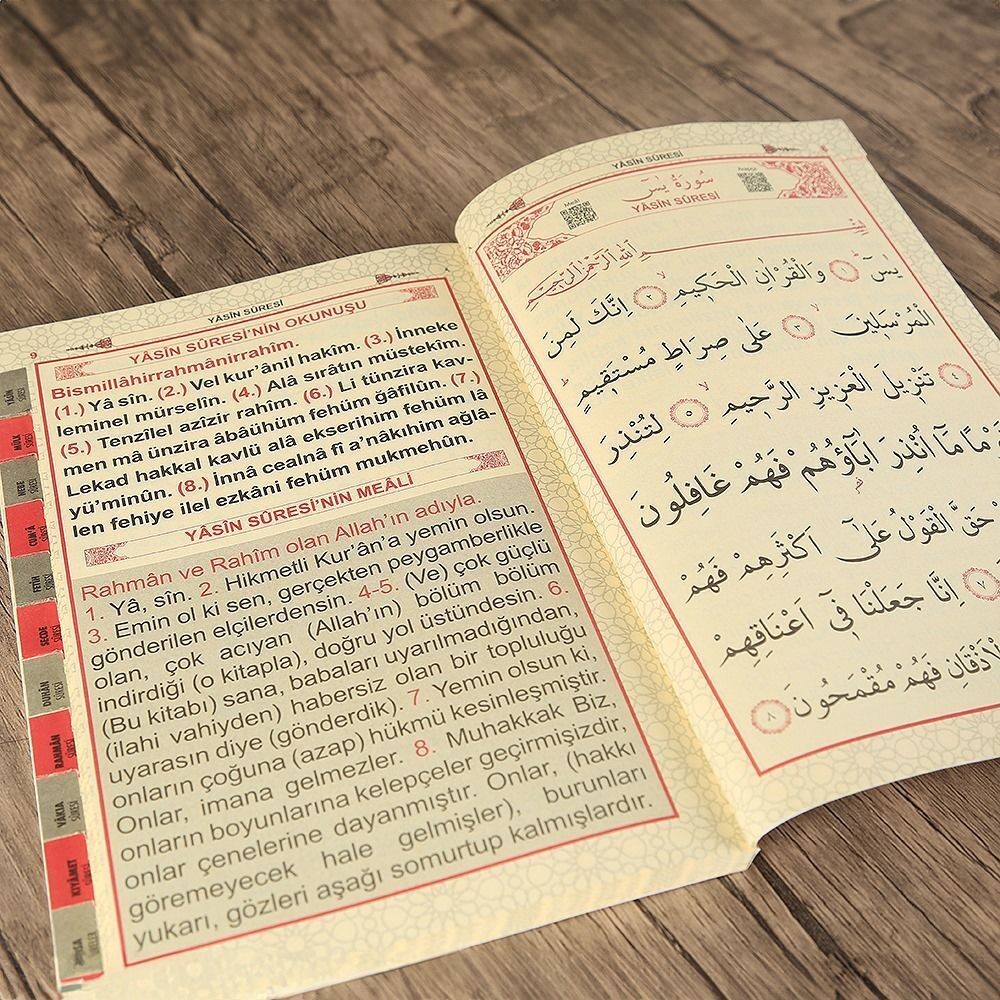 YÂSÎN SÛRESİ
9
YÂSÎN SÛRESİ'NİN OKUNUŞU
Bismillâhirrahmânirrahîm.
(1.) Yâ sîn. (2.) Vel kur'ânil hakîm. (3.) İnneke
leminel mürselîn. (4.) Alâ sırâtın müstekîm.
(5.) Tenzîlel azîzir rahîm. (6.) Li tünzira kav-
men mâ ünzira âbâühüm fehüm ğafilûn. (7.)
Lekad hakkal kavlü alâ ekserihim fehüm lâ
yü'minûn. (8.) İnnâ cealnâ fî a'nâkıhim ağlâ-
len fehiye ilel ezkâni fehüm mukmehûn.
YÂSÎN SÛRESİ'NİN MEÂLİ
Rahmân ve Rahîm olan Allah'ın adıyla.
1. Yâ, sîn. 2. Hikmetli Kur'ân'a yemin olsun.
3. Emin ol ki sen, gerçekten peygamberlikle
gönderilen elçilerdensin. 4-5. (Ve) çok güçlü
olan, çok acıyan (Allah'ın) bölüm bölüm
indirdiği (o kitapla), doğru yol üstündesin. 6.
(Bu kitabı) sana, babaları uyarılmadığından,
(ilahi vahiyden) habersiz olan bir topluluğu
uyarasın diye (gönderdik). 7. Yemin olsun ki,
onların çoğuna (azap) hükmü kesinleşmiştir.
Onlar, imana gelmezler. 8. Muhakkak Biz,
onların boyunlarına kelepçeler geçirmişizdir,
onlar çenelerine dayanmıştır. Onlar, (hakkı
göremeyecek hale gelmişler), burunları
yukarı, gözleri aşağı somurtup kalmışlardır.
YÂSÎN SÛRESİ
MÜLK SÛRESİ
NEBE SÛRESİ
CUM'A SÛRESİ
FETİH SÛRESİ
SECDE SÛRESİ
DUHÂN SÛRESİ
RAHMÂN SÛRESİ
VÂKIA SÛRESİ
KIYÂMET SÛRESİ
YÂSÎN SÛRESİ
Meâli
Arapça
سُورَةُ يٰسٓ
YÂSÎN SÛRESİ
يٰسٓ ١ وَالْقُرْاٰنِ الْحَكٖيمِ ٢ اِنَّكَ لَمِنَ
الْمُرْسَلٖينَ ٣ عَلٰى صِرَاطٍ مُسْتَقٖيمٍ
تَنْزٖيلَ الْعَزٖيزِ الرَّحٖيمِ ٥ لِتُنْذِرَ
مَا اُنْذِرَ اٰبَٓاؤُهُمْ فَهُمْ غَافِلُونَ
حَقَّ الْقَوْلُ عَلٰٓى اَكْثَرِهِمْ فَهُمْ
اِنَّا جَعَلْنَا فٖٓى اَعْنَاقِهِمْ
فَهُمْ مُقْمَحُونَ ٨